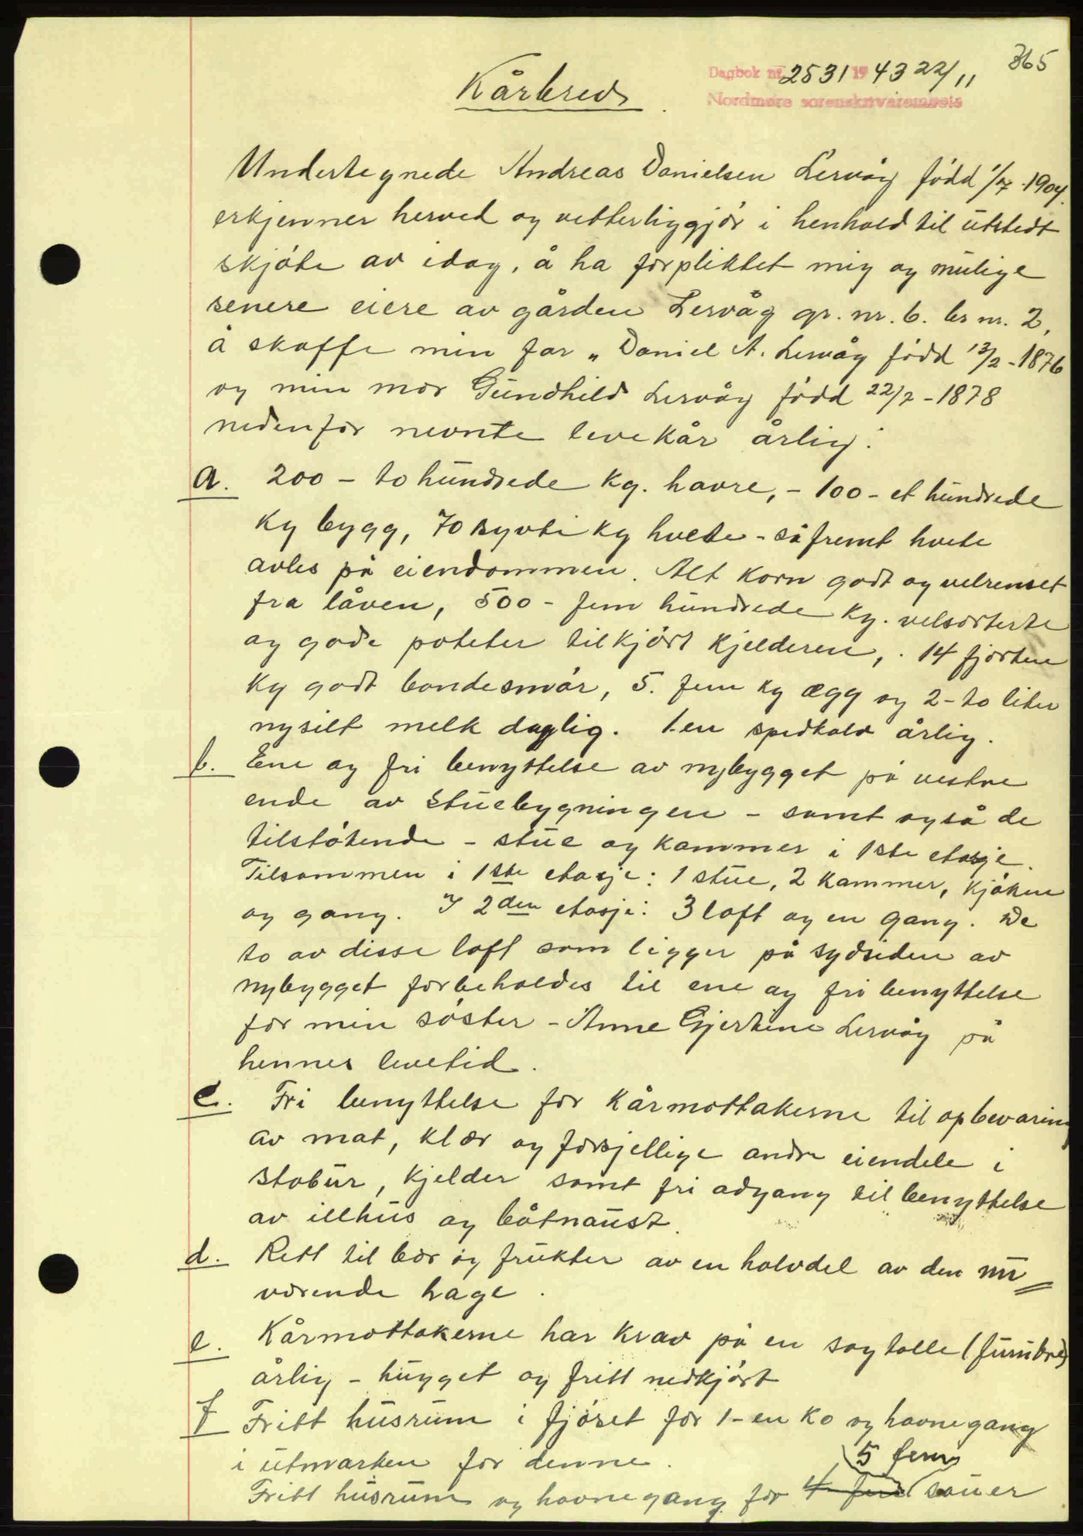 365
Dagbok nr. 2531 1943 22/11
Nordmøre sorenskriverembete
Kårbrev
Undertegnede Andreas Danielsen Lervåg född 1/7-1904.
erkjenner herved og vetterliggjör i henhold til utstedt
skjöte av idag, å ha forpliktet mig og mulige
senere eiere av gården Lervåg gr. nr. 6. br nr. 2,
å skaffe min far „ Daniel A. Lervåg född 13/2-1876
og min mor Gundhild Lervåg född 22/7-1878
nedenfor nevnte levekår årlig:
a. 200 - to hundrede kg. havre, - 100 - et hundrede
kg bygg, 70 syvti kg hvete - såfremt hvete
avles på eiendommen. Alt korn godt og velrenset
fra låven, 500 - fem hundrede kg. velsorterte
og gode poteter tilkjört kjelderen, . 14 fjorten
kg godt bondesmör, 5. fem kg egg og 2 - to liter
nysilt melk daglig. 1 en spedkalv årlig.
b. Ene og fri benyttelse av nybygget på vestre
ende av stuebygningen - samt også de
tilstötende - stue og kammer i 1ste etasje.
Tilsammen i 1ste etasje: 1 stue, 2 kammer, kjöken
og gang. I 2den etasje: 3 loft og en gang. De
to av disse loft som ligger på sydsiden av
nybygget forbeholdes til ene og fri benyttelse
for min söster - Anne Gjertine Lervåg på
hennes levetid.
c. Fri benyttelse for kårmottakerne til opbevaring
av mat, klær og forsjellige andre eiendele i
stabur, kjelder samt fri adgang til benyttelse
av illhus og båtnaust.
d. Rett til bær og frukter av en halvdel av den nu
værende hage.
e. Kårmottakerne har krav på en sagtolle (furubre)
årlig - hugget og fritt nedkjört
f Fritt husrum i fjöset for 1 - en ko og havnegang
i utmarken for denne.
5 fem
Fritt husrum og havnegang for 4 fire sauer